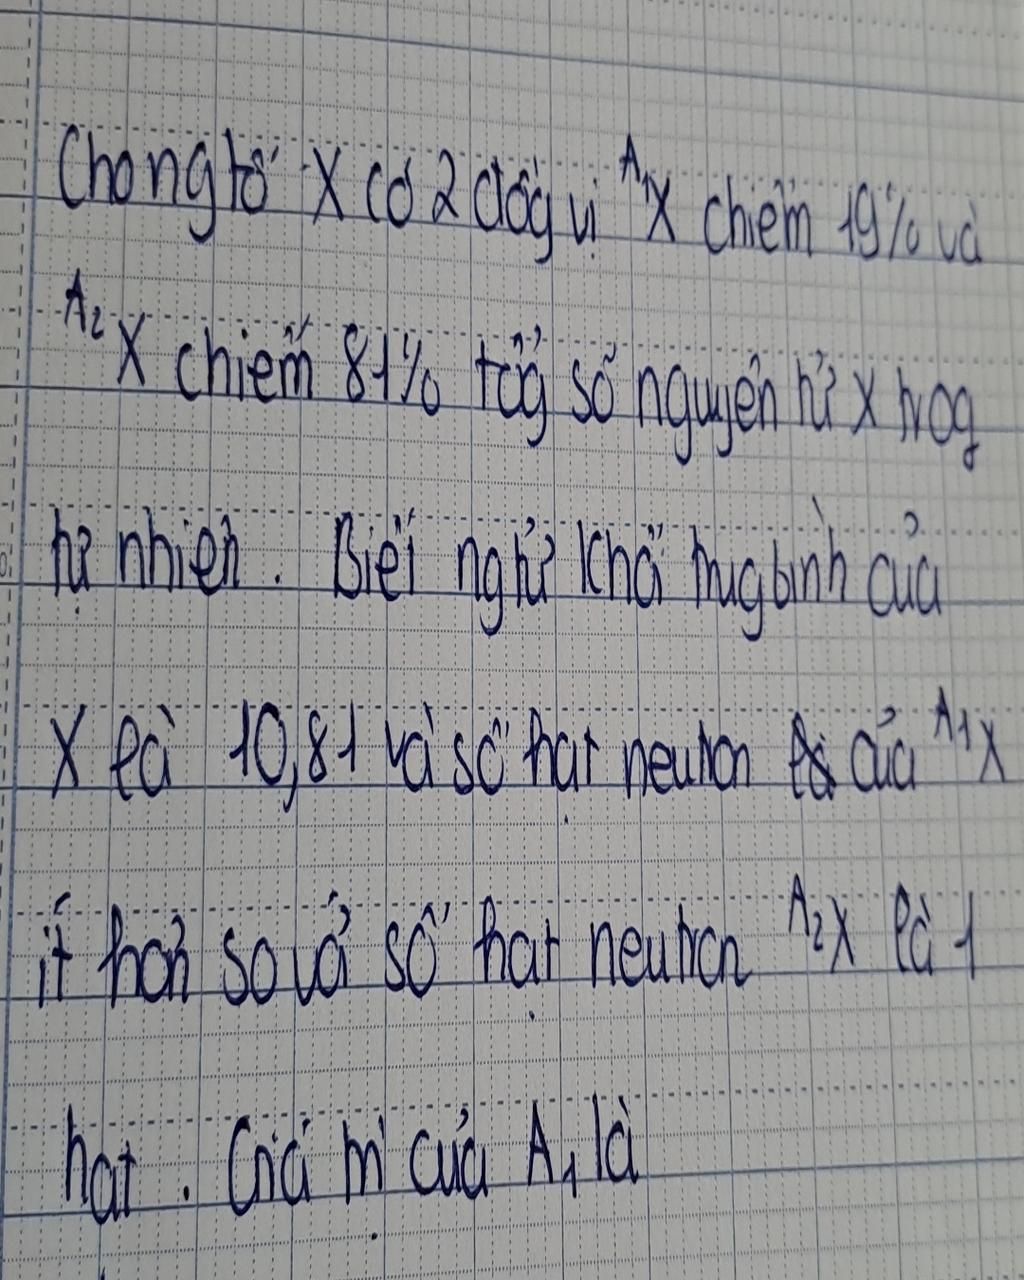 Cho ng tố X có 2 đồg vị ᴬ¹X chiếm 19% và
ᴬ²X chiếm 81% tổg số nguyên tử X trog
tự nhiên. Biết ngtử khối trugbình của
X là 10,81 và số hạt neutron của ᴬ¹X
ít hơn so với số hạt neutron ᴬ²X là 1
hạt. Giá trị của A₁ là